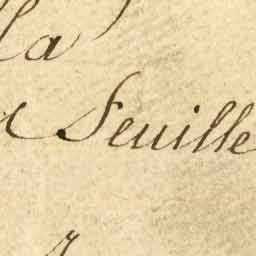 la
Feuille